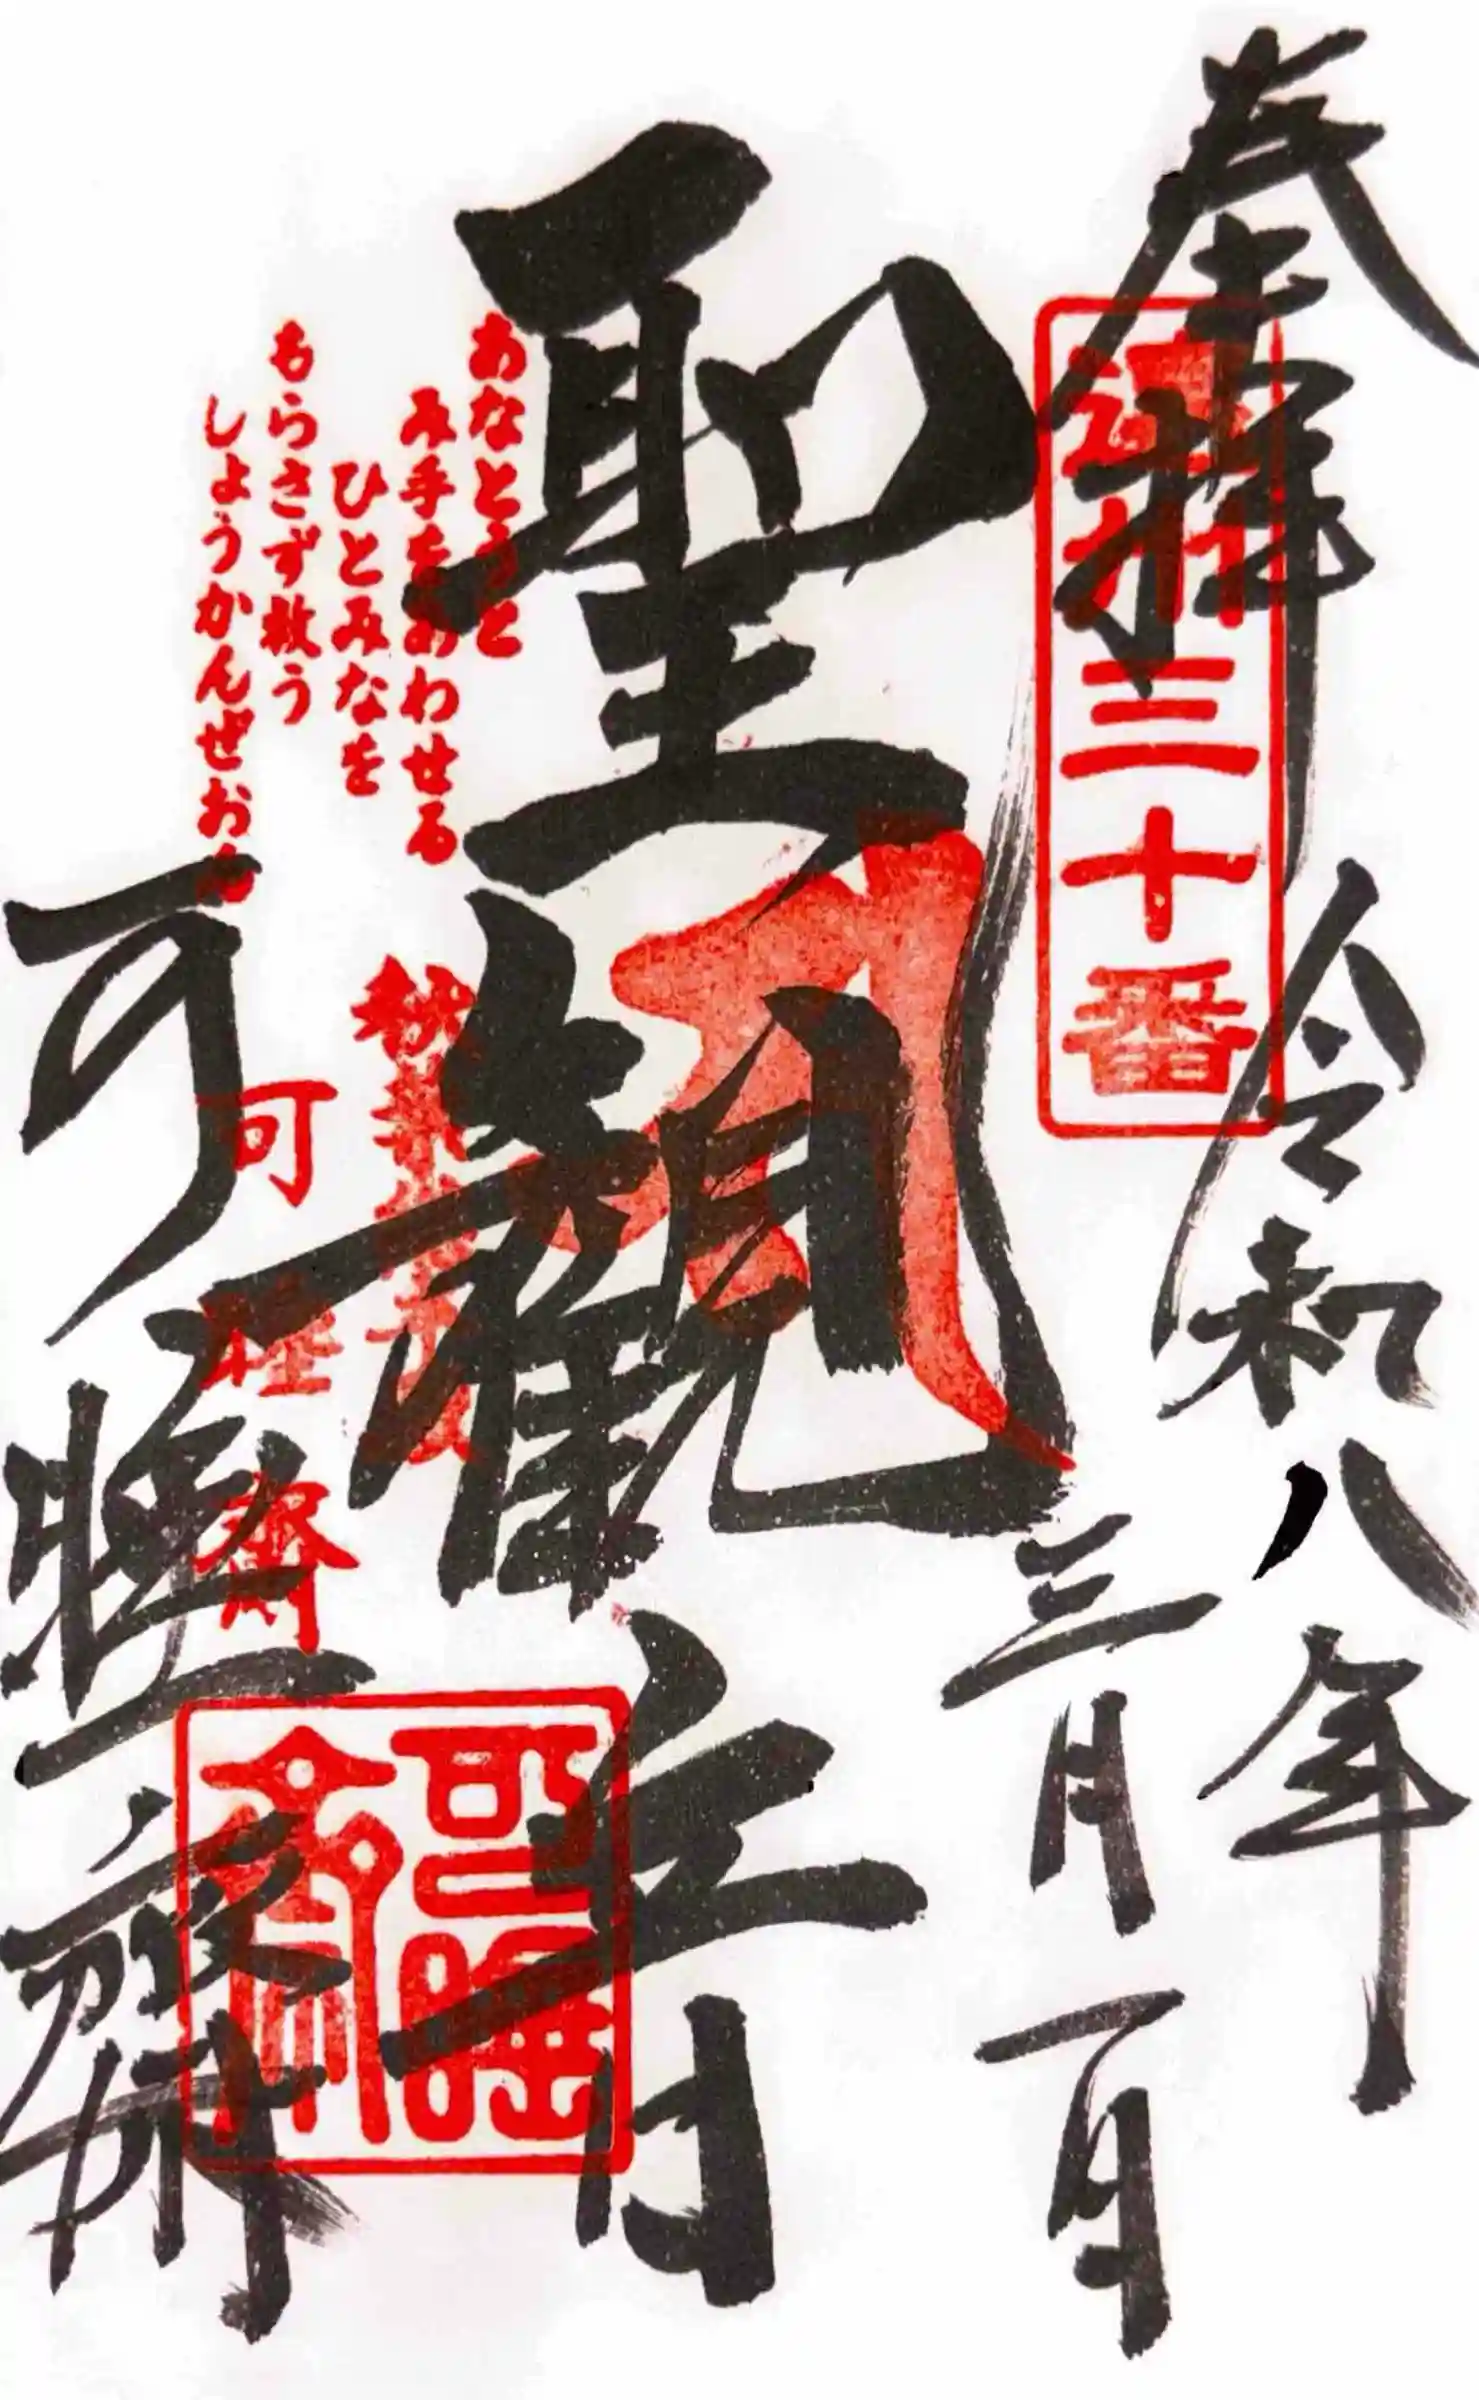 奉拝
遠州三十番
令和八年
三月一日
聖観音
あなとうと
み手をあわせる
ひとみなを
もらさず救う
しょうかんぜおん
秋葉總本殿
可睡齋
可睡齋